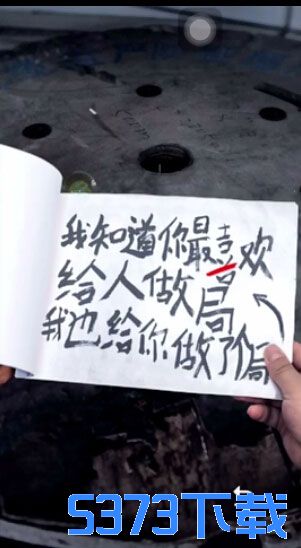 我知道你最喜欢
给人做局
我也给你做了局
5373下载